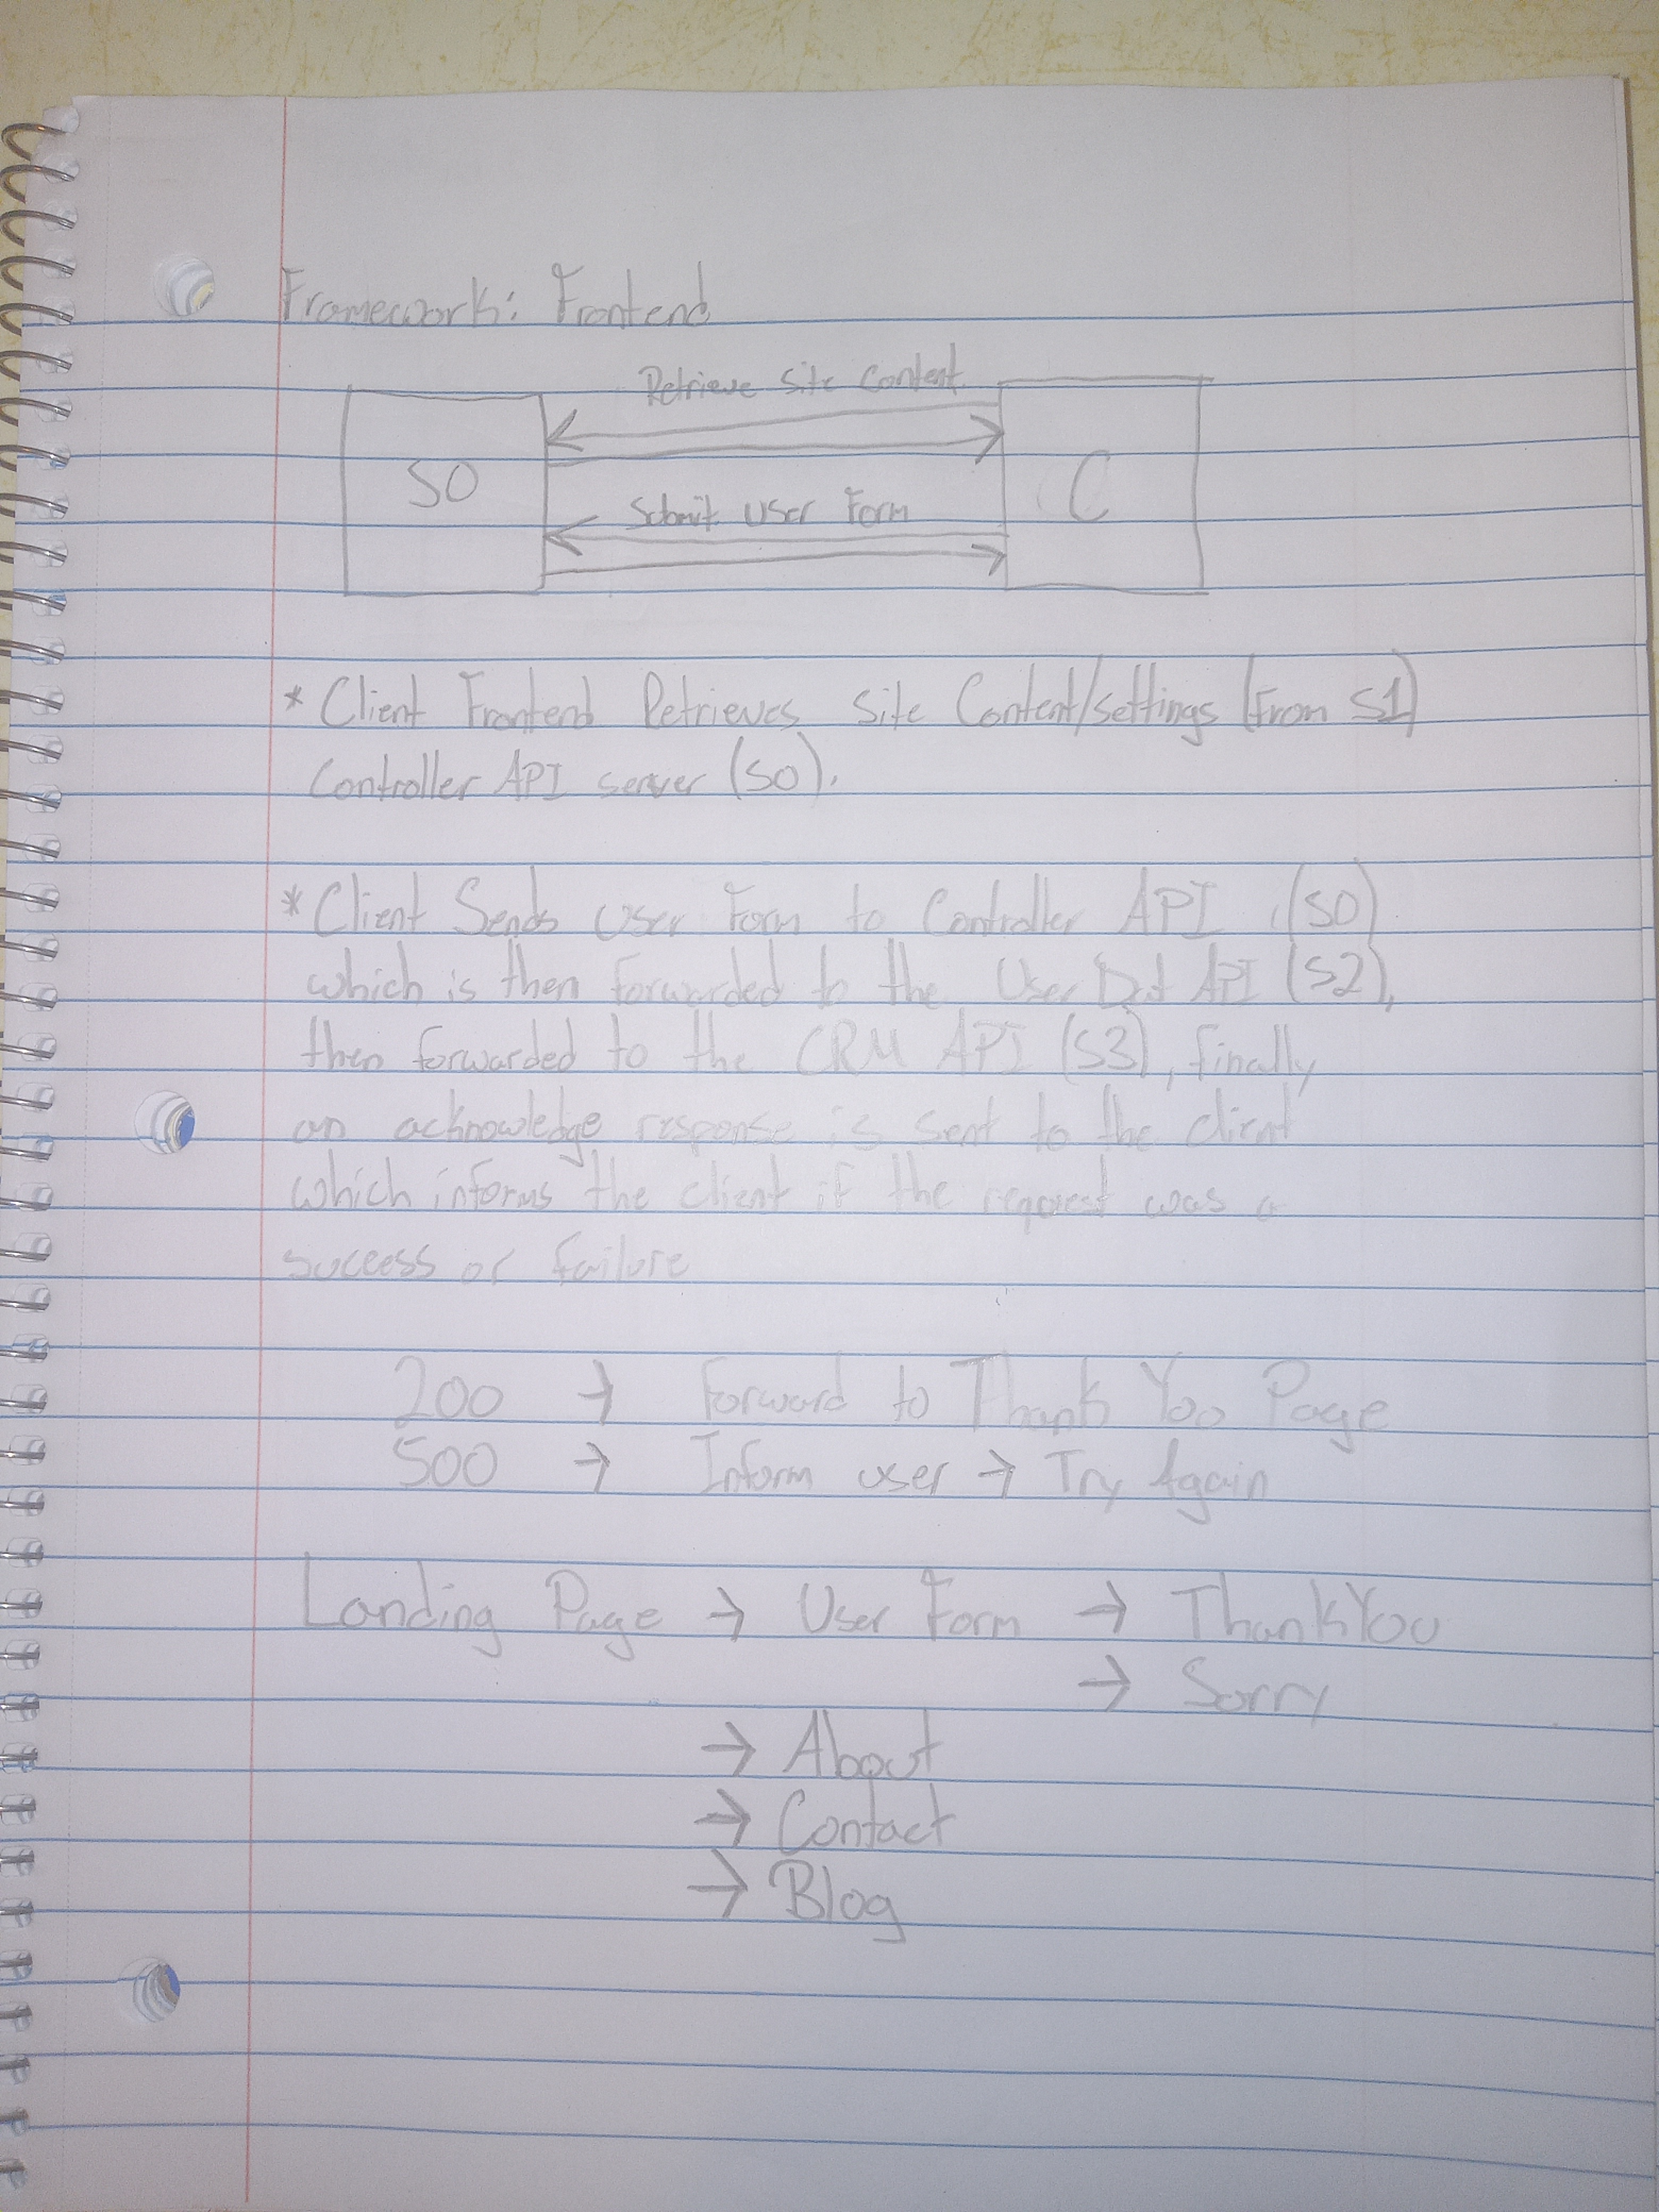 Framework: Frontend
Retrieve Site Content
S0
C
Submit User Form
* Client Frontend Retrieves Site Content/settings (From S1)
Controller API server (S0).
* Client Sends User Form to Controller API (S0)
which is then forwarded to the User Dat API (S2),
then forwarded to the CRM API (S3), finally
an acknowledge response is sent to the client
which informs the client if the request was a
success or failure
200 → Forward to Thank You Page
500 → Inform user → Try Again
Landing Page → User Form → ThankYou
→ Sorry
→ About
→ Contact
→ Blog